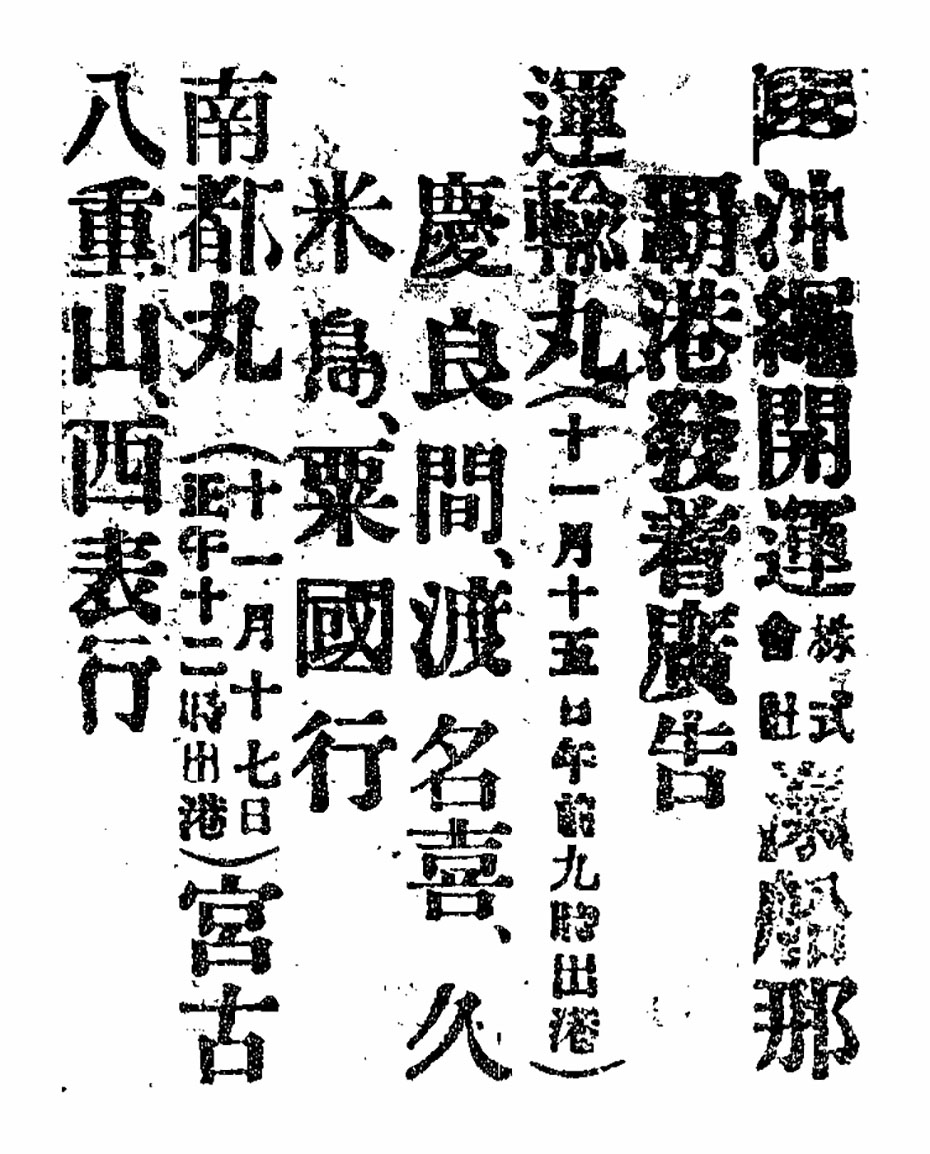 沖繩開運株式會社滊船那
覇港發着廣告
運輸丸(十一月十五日午前九時出港)
慶良間、渡名喜、久
米島、粟國行
南都丸(十一月十七日正午十二時出港)宮古
八重山、西表行